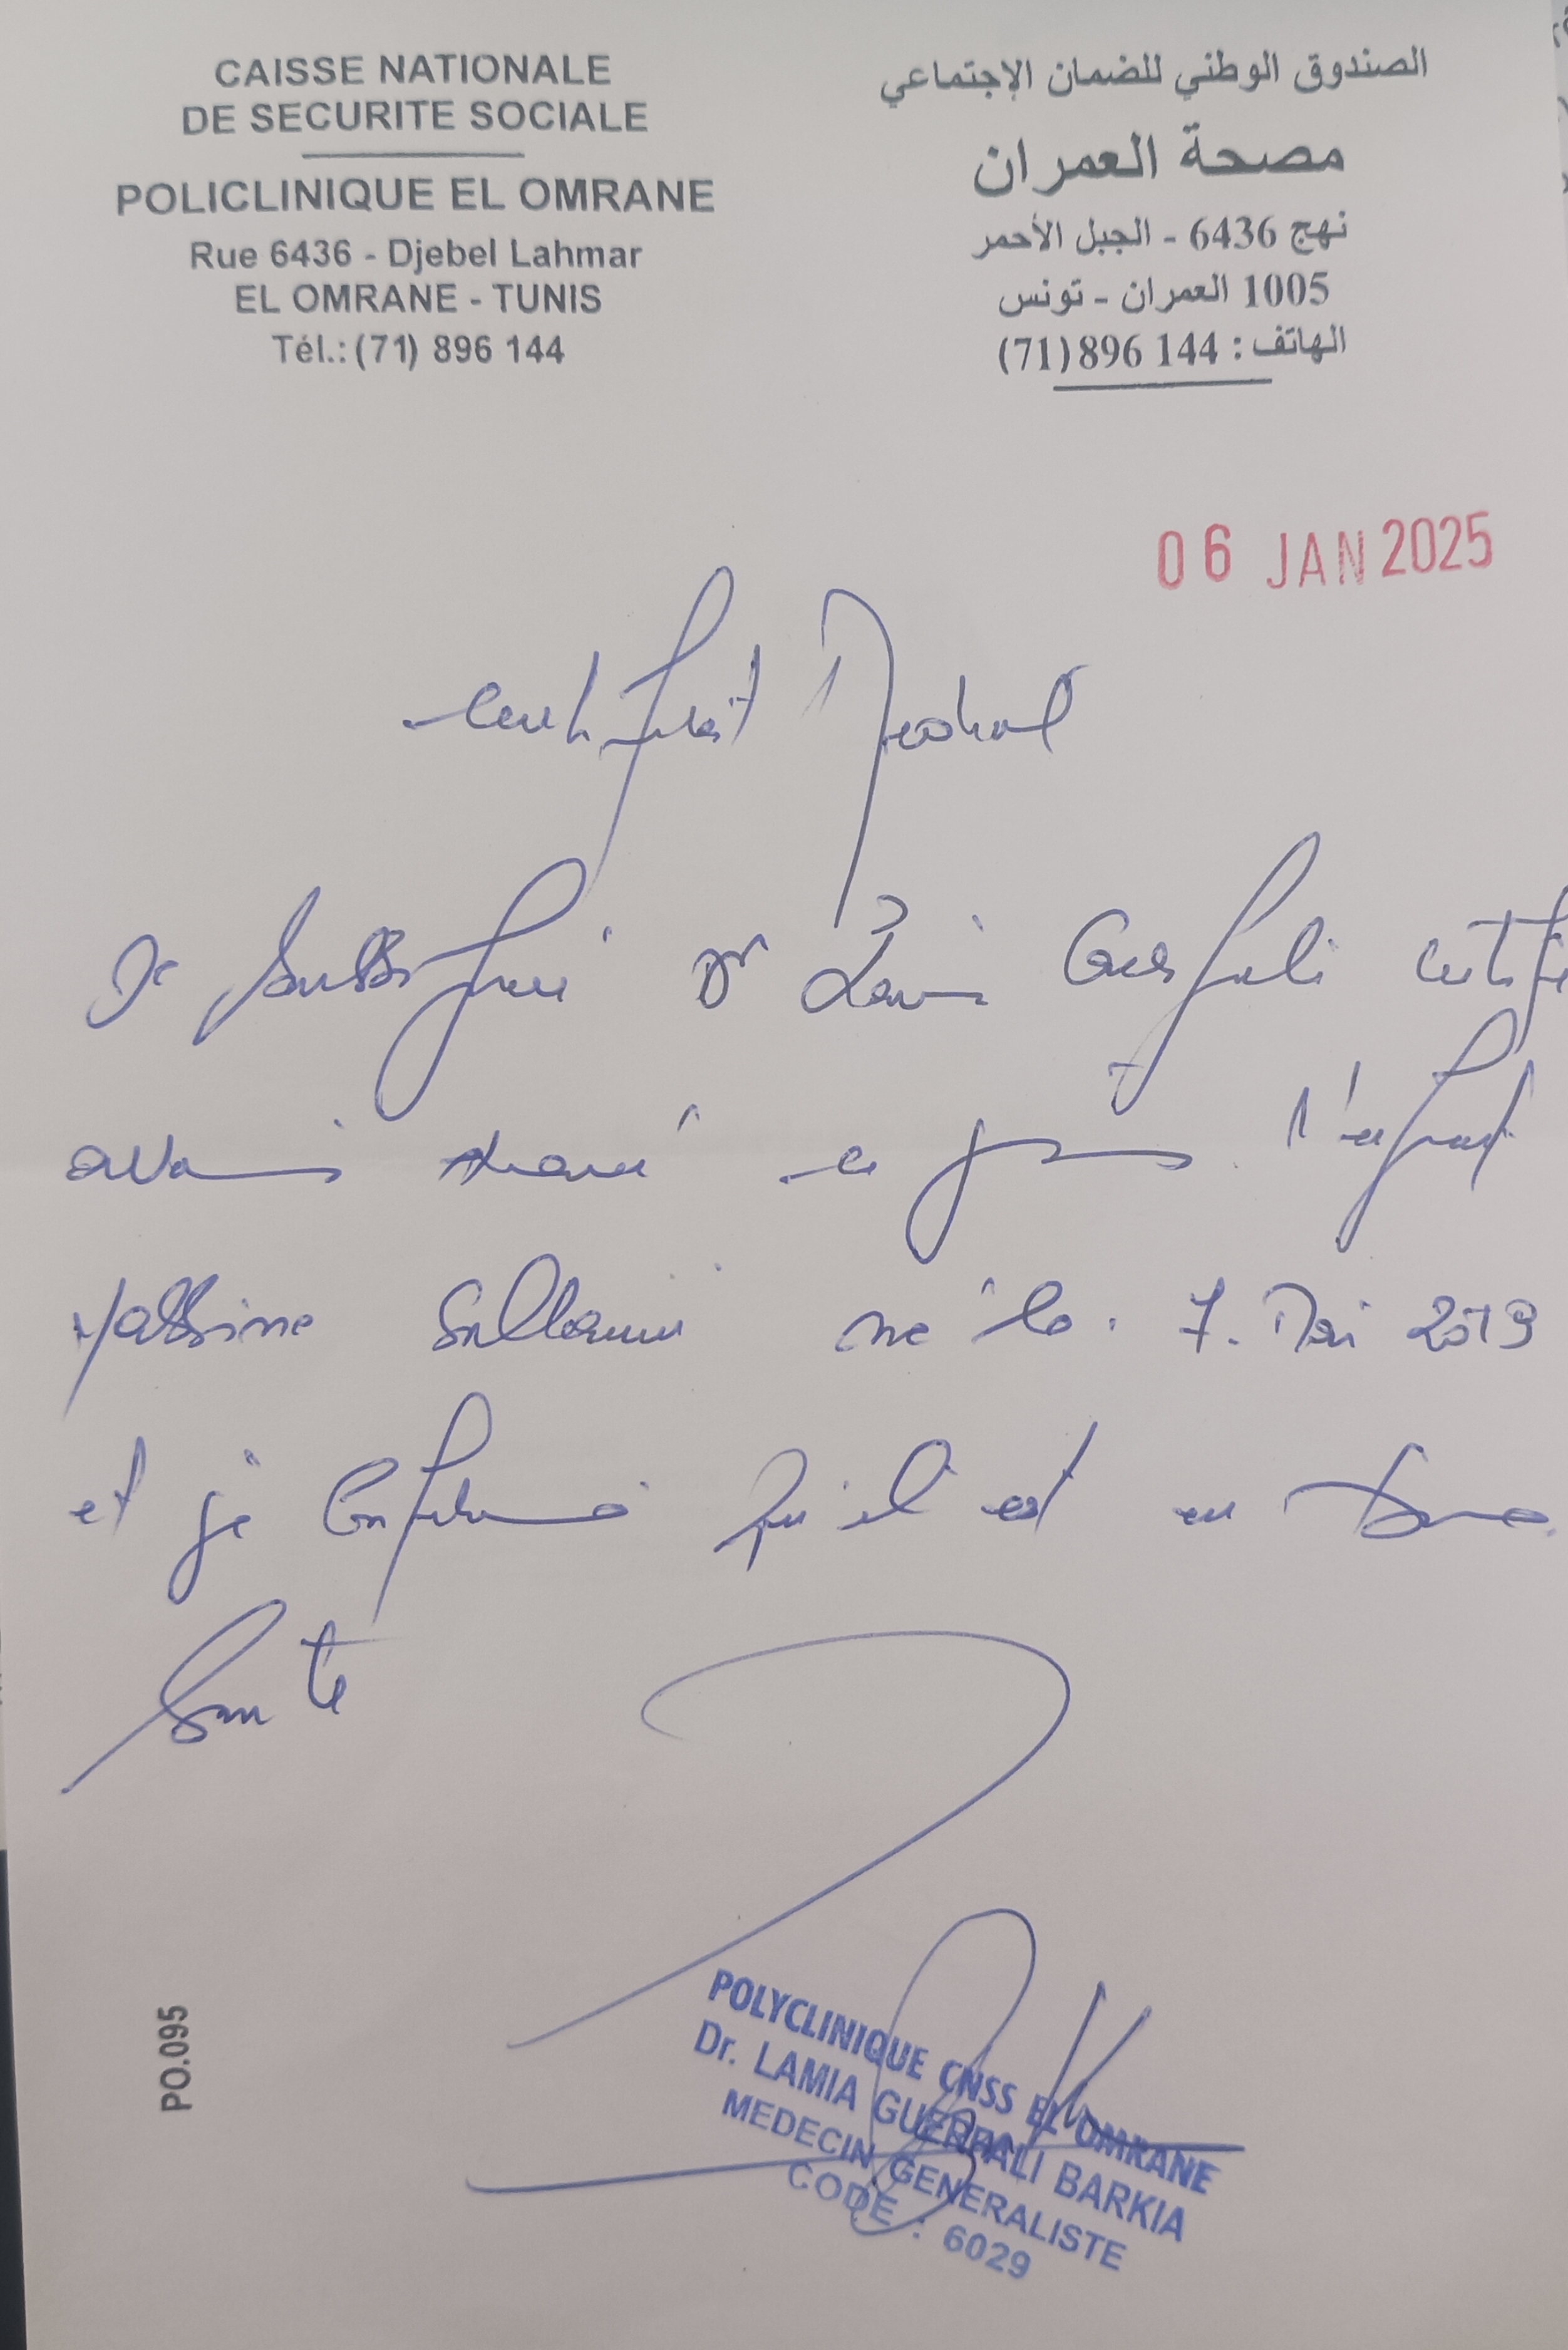 CAISSE NATIONALE
DE SECURITE SOCIALE
POLICLINIQUE EL OMRANE
Rue 6436 - Djebel Lahmar
EL OMRANE - TUNIS
Tél.: (71) 896 144
الصندوق الوطني للضمان الإجتماعي
مصحة العمران
نهج 6436 - الجبل الأحمر
1005 العمران - تونس
الهاتف : 144 896 (71)
06 JAN 2025
Certificat Medical
Je soussigné Dr Lamia Guerfali certifie
avoir examiné ce jour l'enfant
Yassine Sellami né le 7 Mai 2019
et je confirme qu'il est en bonne
santé
POLYCLINIQUE CNSS EL OMRANE
Dr. LAMIA GUERFALI BARKIA
MEDECIN GENERALISTE
CODE : 6029
PO.095